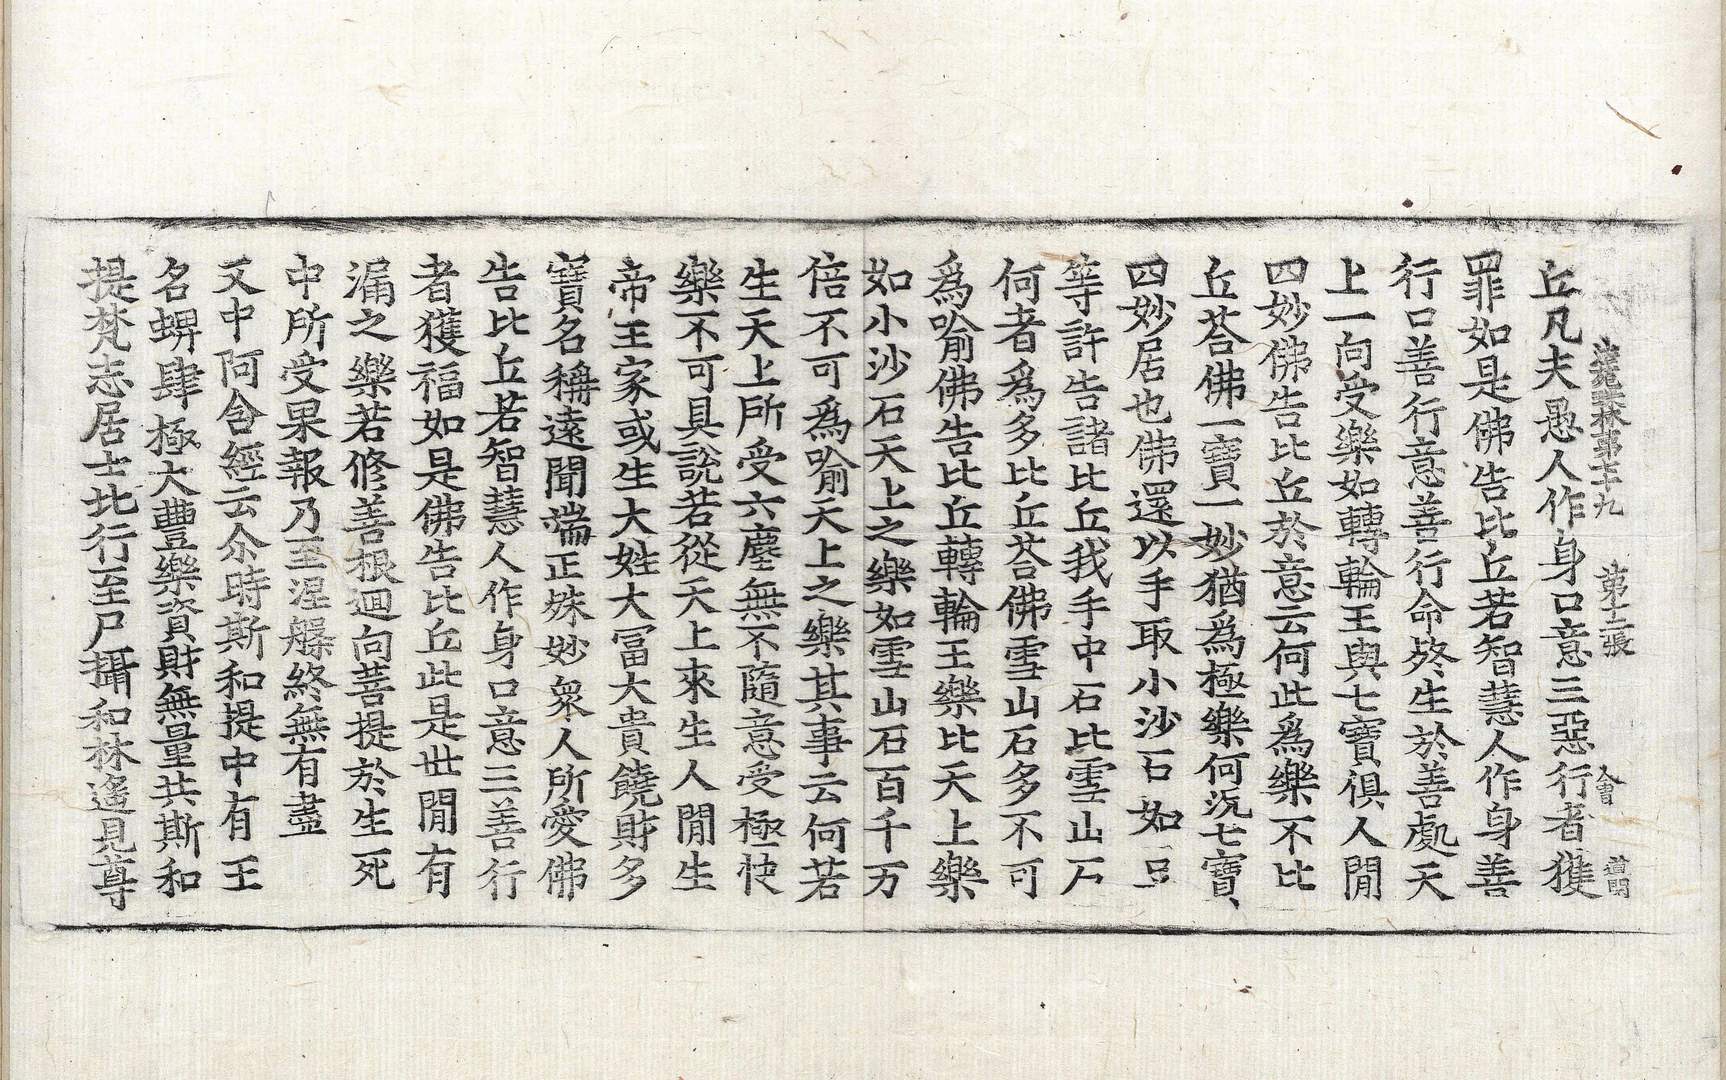 法苑珠林第六十九　第十二張　㑹　道明
丘凡夫愚人作身口意三惡行者獲
罪如是佛告比丘若智慧人作身善
行口善行意善行命終生於善處天
上一向受樂如轉輪王與七寶俱人閒
四妙佛告比丘於意云何此爲樂不比
丘荅佛一寶一妙猶爲極樂何況七寶
四妙居也佛還以手取小沙石如豆
等許告諸比丘我手中石比雪山石
何者爲多比丘荅佛雪山石多不可
爲喻佛告比丘轉輪王樂比天上樂
如小沙石天上之樂如雪山石百千万
倍不可爲喻天上之樂其事云何若
生天上所受六塵無不隨意受極快
樂不可具說若從天上來生人閒生
帝王家或生大姓大冨大貴饒財多
寶名稱遠聞端正姝妙衆人所愛佛
告比丘若智慧人作身口意三善行
者獲福如是佛告比丘此是世閒有
漏之樂若修善根迴向菩提於生死
中所受果報乃至涅槃終無有盡
又中阿含經云尒時斯和提中有王
名蜱肆極大豐樂資財無量共斯和
提梵志居士比行至尸攝和林遙見尊